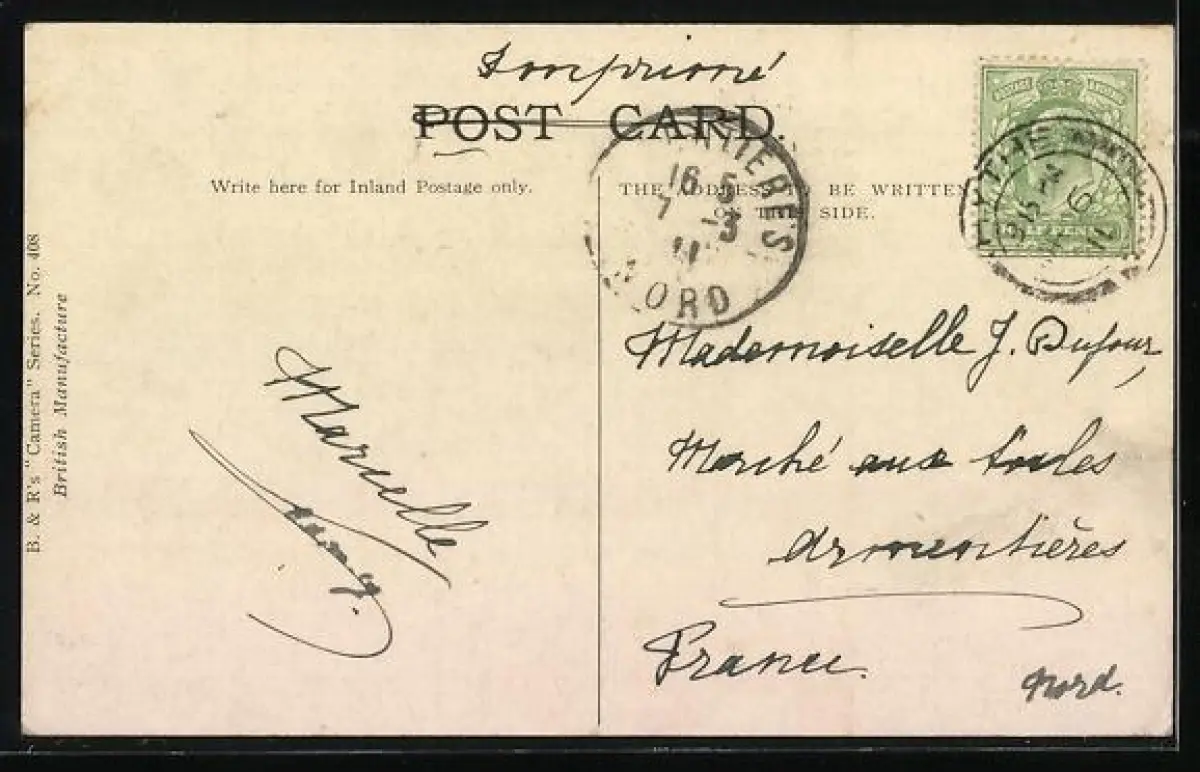 Imprimé
POST CARD.
Write here for Inland Postage only.
THE ADDRESS TO BE WRITTEN
ON THIS SIDE.
HYTHE
HALF PENNY
16 5
7 -3
11
NORD
Mademoiselle J. Dufour,
Marché aux toiles
Armentières
France.
Nord.
Marcelle
B. & R's "Camera" Series. No. 408
British Manufacture